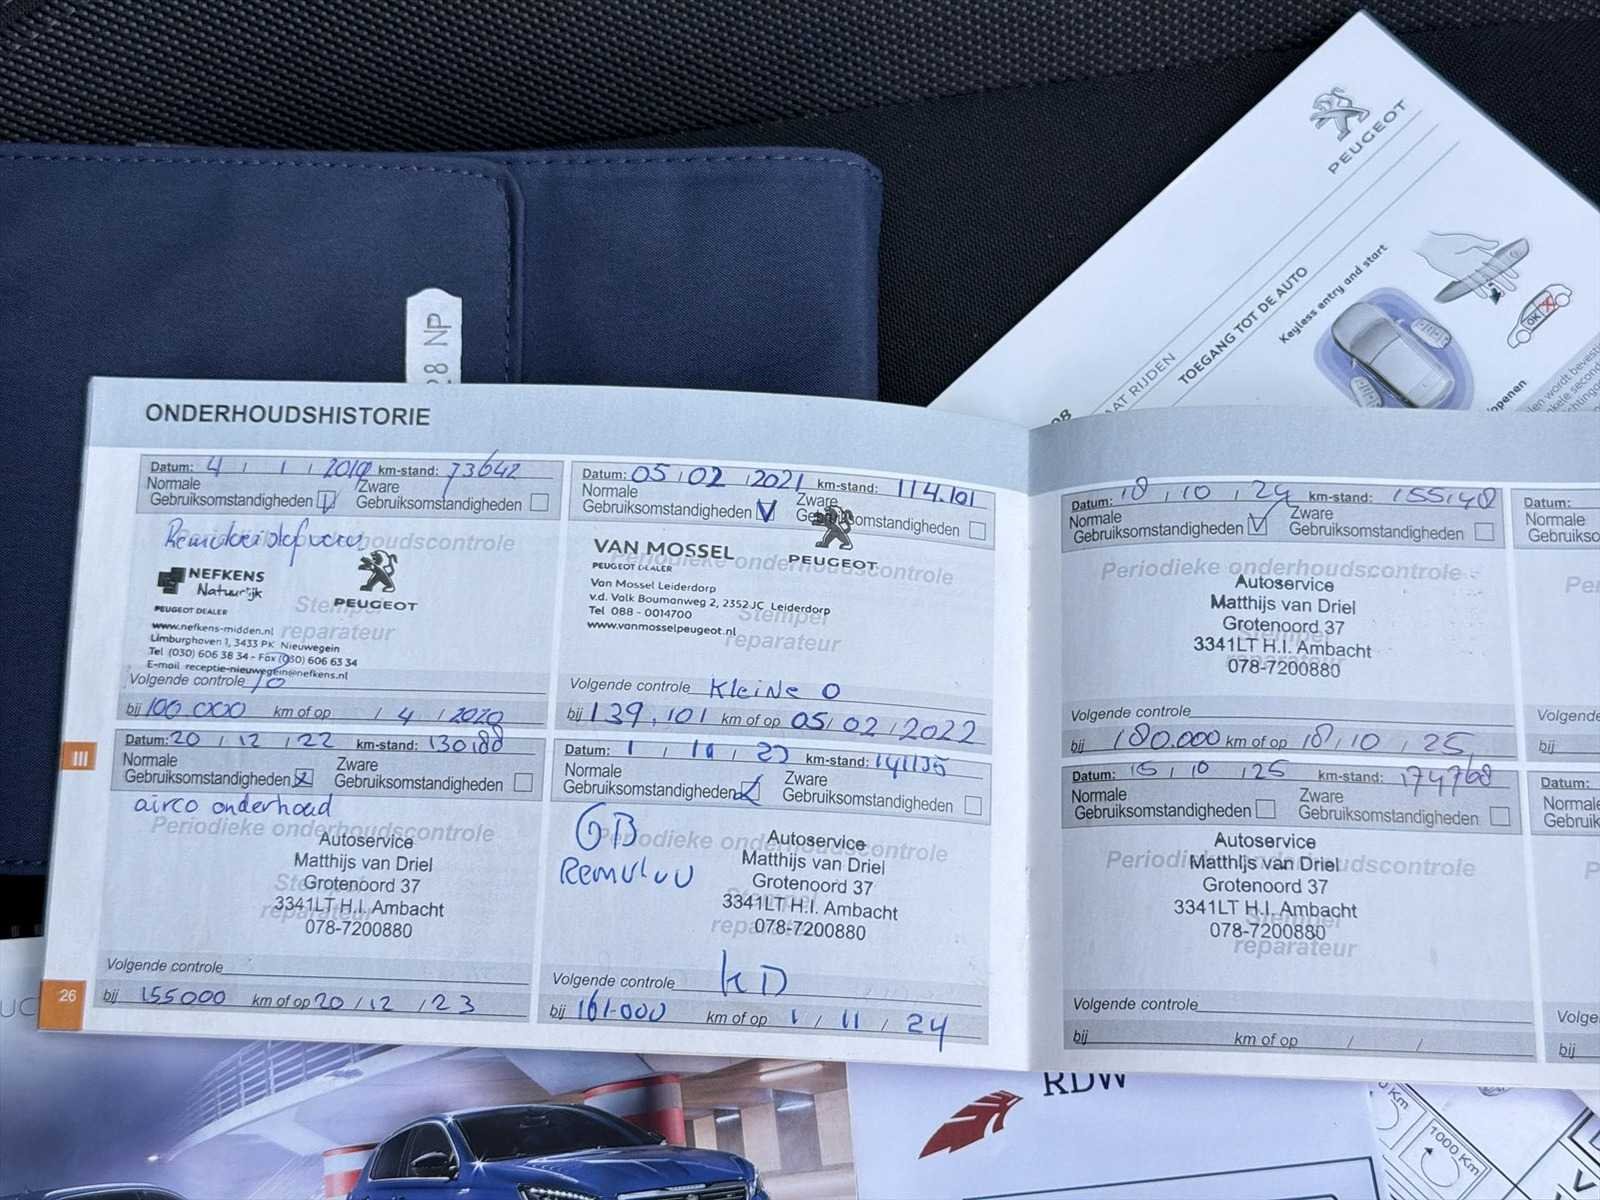 PEUGEOT
Keyless entry and start
TOEGANG TOT DE AUTO
AAT RIJDEN
OK
28 NP
ONDERHOUDSHISTORIE
Datum: 4 / 1 / 2019 km-stand: 73642
Normale Gebruiksomstandigheden
Zware Gebruiksomstandigheden
Periodieke onderhoudscontrole
NEFKENS
Natuurlijk
PEUGEOT
PEUGEOT DEALER
Stempel reparateur
www.nefkens-midden.nl
Limburghaven 1, 3433 PK Nieuwegein
Tel (030) 606 38 34 - Fax (030) 606 63 34
E-mail receptie-nieuwegein@nefkens.nl
Volgende controle
bij 100.000 km of op / 4 / 2020
Datum: 05 / 02 / 2021 km-stand: 114.101
Normale Gebruiksomstandigheden
Zware Gebruiksomstandigheden
Periodieke onderhoudscontrole
VAN MOSSEL
PEUGEOT DEALER
PEUGEOT
Van Mossel Leiderdorp
v.d. Valk Boumanweg 2, 2352 JC Leiderdorp
Tel 088 - 0014700
www.vanmosselpeugeot.nl
Stempel reparateur
Volgende controle Kleine O
bij 139.101 km of op 05 / 02 / 2022
Datum: 20 / 12 / 22 km-stand: 130188
Normale Gebruiksomstandigheden
Zware Gebruiksomstandigheden
airco onderhoud
Periodieke onderhoudscontrole
Autoservice
Matthijs van Driel
Grotenoord 37
3341LT H.I. Ambacht
078-7200880
Stempel reparateur
Volgende controle
bij 155000 km of op 20 / 12 / 23
III
26
Datum: 1 / 11 / 23 km-stand: 141135
Normale Gebruiksomstandigheden
Zware Gebruiksomstandigheden
GB
Periodieke onderhoudscontrole
Autoservice
Matthijs van Driel
Grotenoord 37
3341LT H.I. Ambacht
078-7200880
Stempel reparateur
Volgende controle KD
bij 161.000 km of op 1 / 11 / 24
Datum: 18 / 10 / 24 km-stand: 155148
Normale Gebruiksomstandigheden
Zware Gebruiksomstandigheden
Periodieke onderhoudscontrole
Autoservice
Matthijs van Driel
Grotenoord 37
3341LT H.I. Ambacht
078-7200880
Volgende controle
bij 180.000 km of op 18 / 10 / 25
Datum: 15 / 10 / 25 km-stand: 174768
Normale Gebruiksomstandigheden
Zware Gebruiksomstandigheden
Periodieke onderhoudscontrole
Autoservice
Matthijs van Driel
Grotenoord 37
3341LT H.I. Ambacht
078-7200880
Stempel reparateur
Volgende controle
bij km of op / /
Datum:
Datum:
bij
bij
RDW
1000 Km